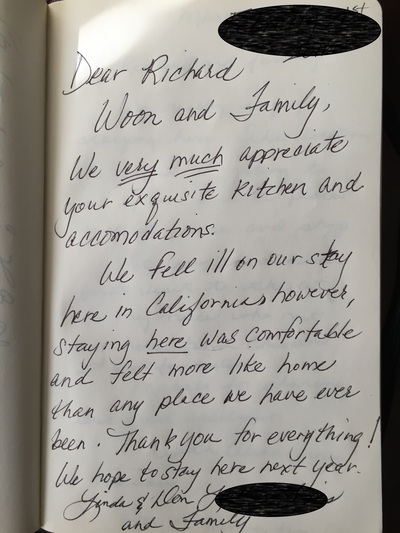 Dear Richard
Woon and Family,
We very much appreciate
your exquisite kitchen and
accomodations.
We fell ill on our stay
here in California, however,
staying here was comfortable
and felt more like home
than any place we have ever
been. Thank you for everything!
We hope to stay here next year.
Linda & Don
and Family